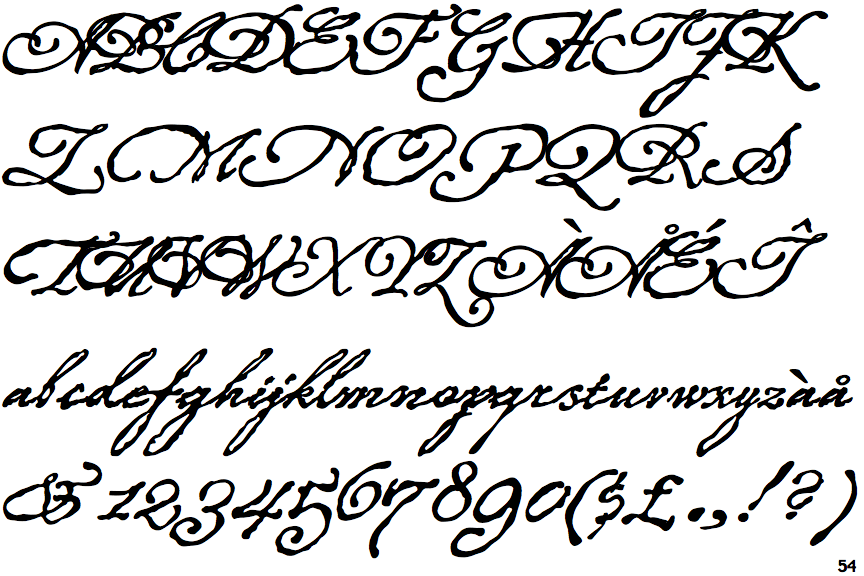 ABCDEFGHIJK
LMNOPQRS
TUVWXYZÀÅÉÎ
abcdefghijklmnopqrstuvwxyzàå
&1234567890($£.,!?)
54